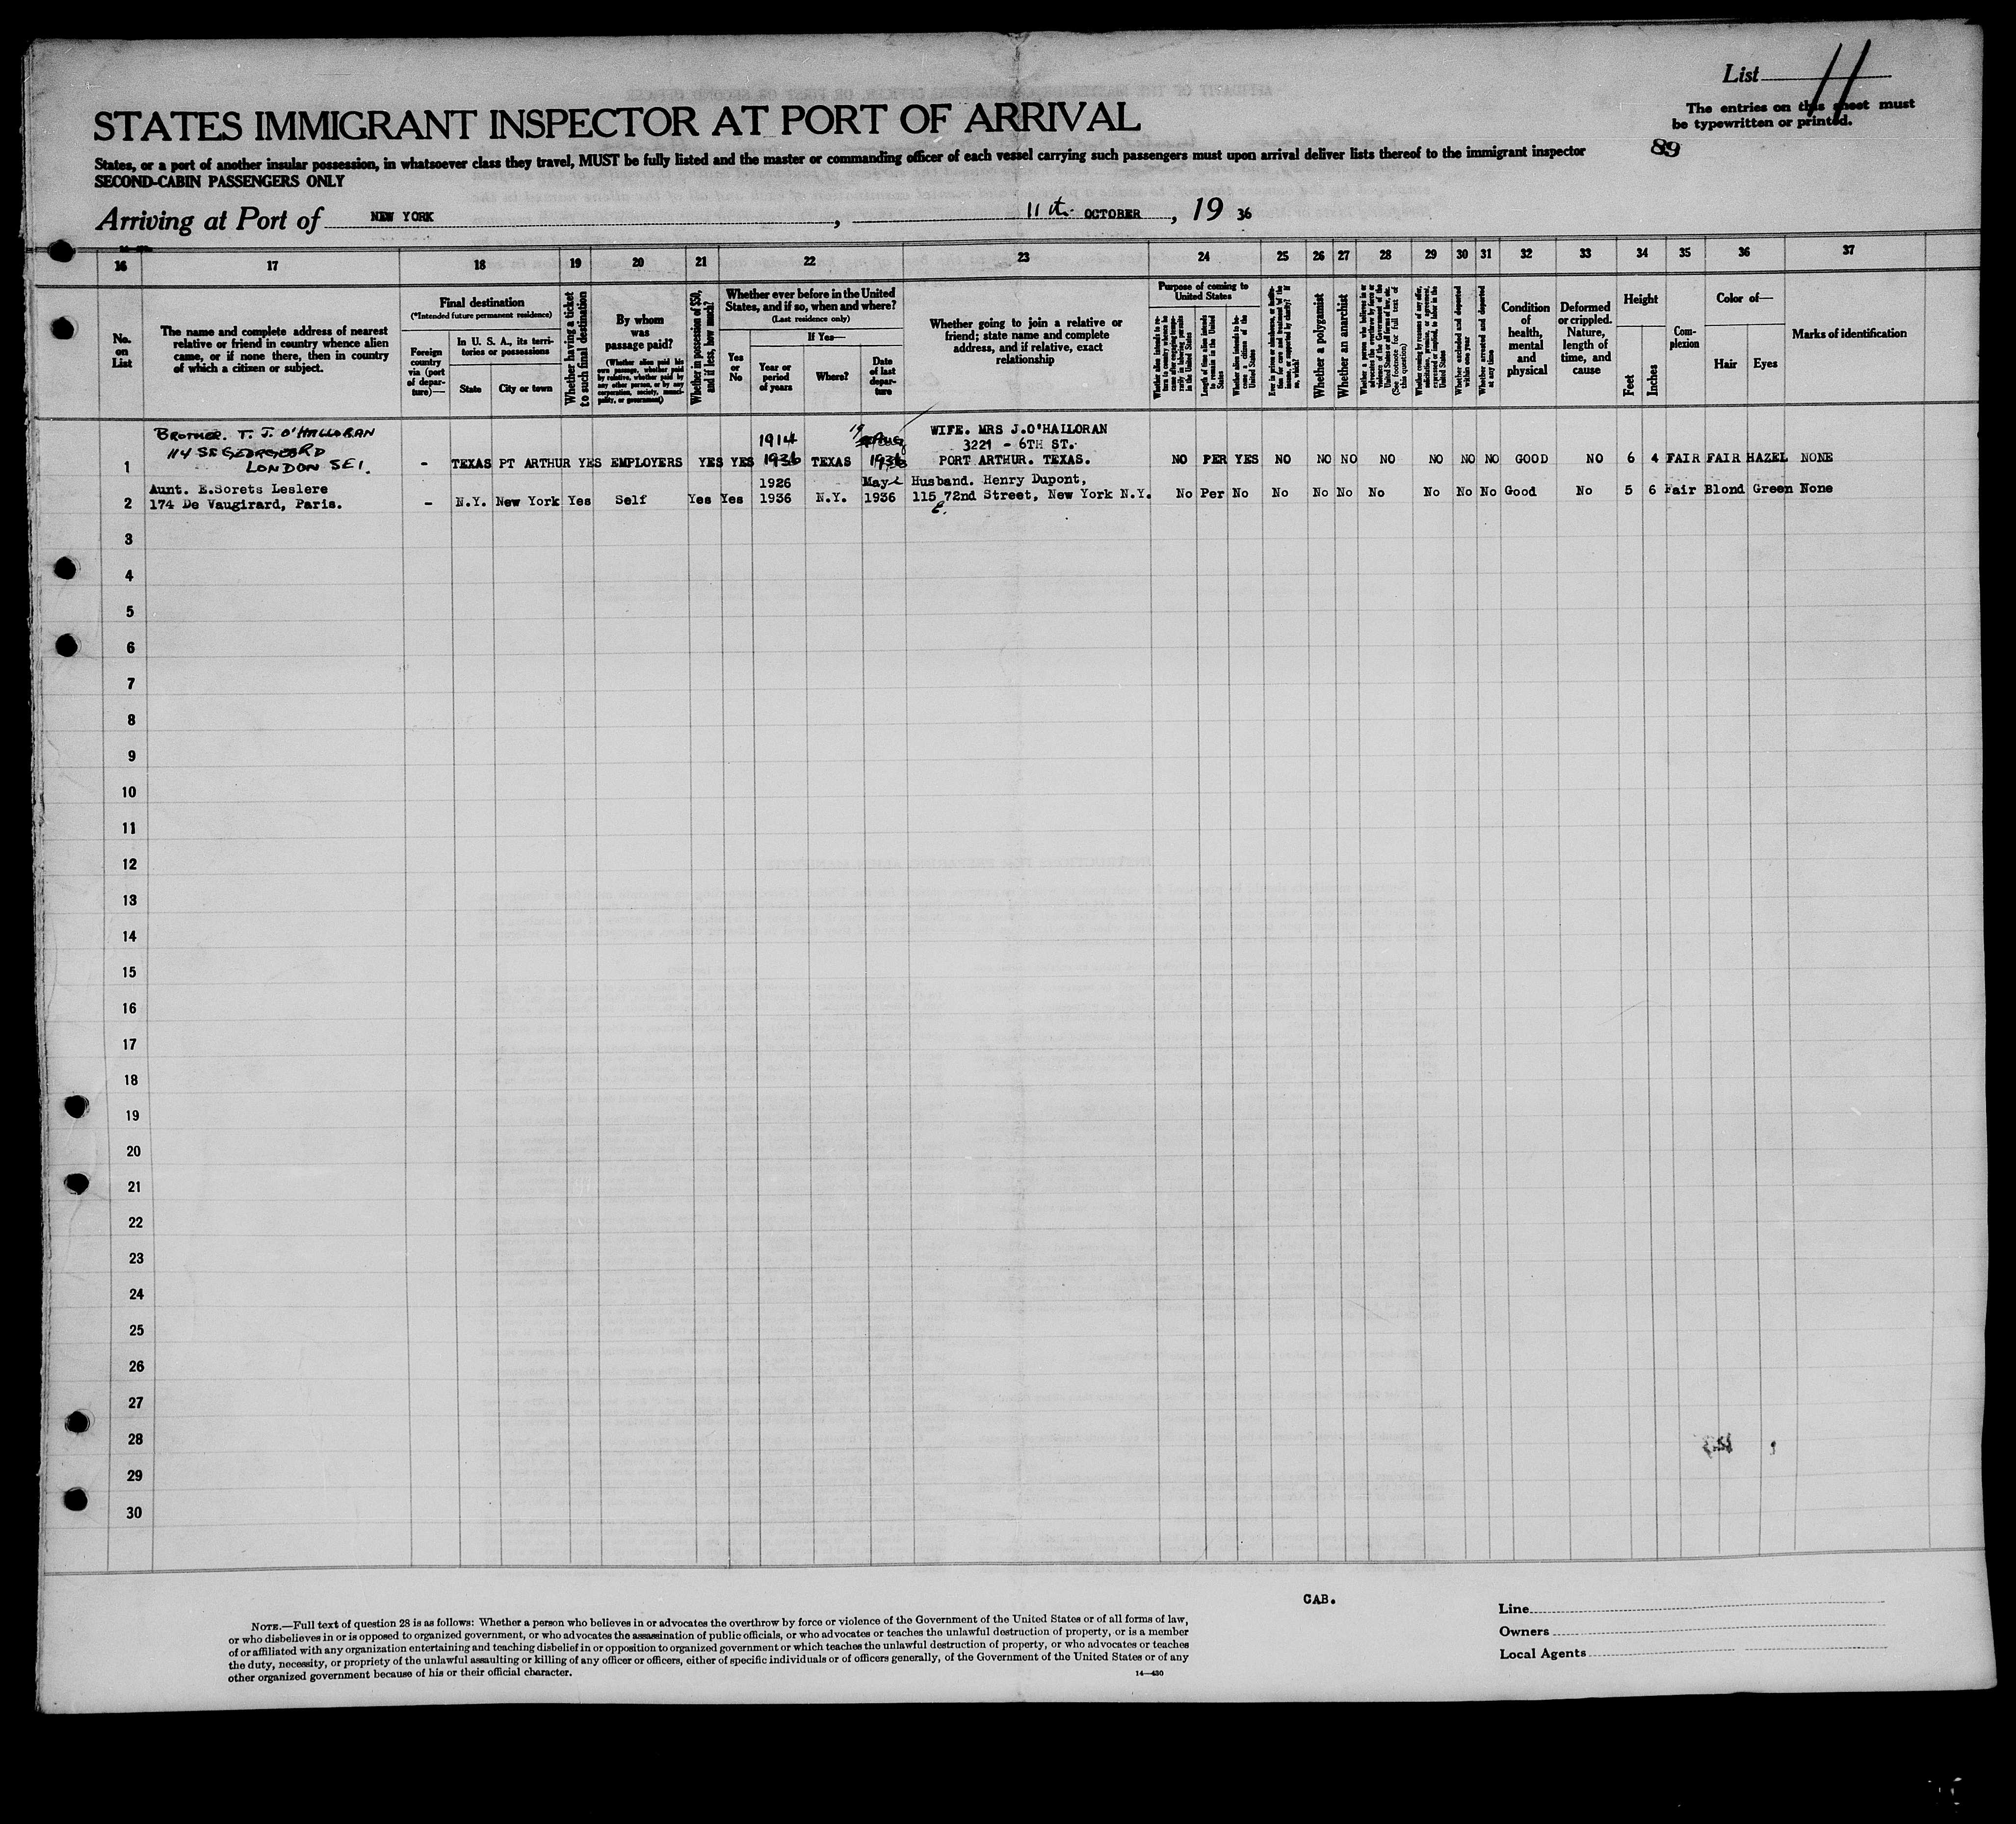 List 11
The entries on this sheet must
be typewritten or printed.
89
STATES IMMIGRANT INSPECTOR AT PORT OF ARRIVAL
States, or a port of another insular possession, in whatsoever class they travel, MUST be fully listed and the master or commanding officer of each vessel carrying such passengers must upon arrival deliver lists thereof to the immigrant inspector
SECOND-CABIN PASSENGERS ONLY
Arriving at Port of NEW YORK, 11th OCTOBER, 19 36
16 17 18 19 20 21 22 23 24 25 26 27 28 29 30 31 32 33 34 35 36 37
No.
on
List
The name and complete address of nearest
relative or friend in country whence alien
came, or if none there, then in country
of which a citizen or subject.
Final destination
(*Intended future permanent residence)
Foreign
country
via (port
of depar-
ture)—
In U. S. A., its terri-
tories or possessions
State
City or town
Whether having a ticket
to such final destination
By whom
was
passage paid?
(Whether alien paid his
own passage, whether paid
by relative, whether paid by
any other person, or by any
corporation, society, munici-
pality, or government)
Whether in possession of $50,
and if less, how much?
Whether ever before in the United
States, and if so, when and where?
(Last residence only)
Yes
or
No
If Yes—
Year or
period
of years
Where?
Date
of last
depar-
ture
Whether going to join a relative or
friend; state name and complete
address, and if relative, exact
relationship
Purpose of coming to
United States
Length of time alien intends
to remain in the United
States
Whether alien intends to be-
come a citizen of the
United States
Whether a polygamist
Whether an anarchist
(See footnote for full text of
this question)
Whether arrested and deported
at any time
Condition
of
health,
mental
and
physical
Deformed
or crippled.
Nature,
length of
time, and
cause
Height
Feet
Inches
Com-
plexion
Color of—
Hair
Eyes
Marks of identification
BROTHER. T. J. O'HALLORAN
114 ST GEORGES RD
LONDON SE1.
1 - TEXAS PT ARTHUR YES EMPLOYERS YES YES
1914
1936 TEXAS
Aug
1936
WIFE. MRS J.O'HALLORAN
3221 - 6TH ST.
PORT ARTHUR. TEXAS.
NO PER YES NO NO NO NO NO NO NO GOOD NO 6 4 FAIR FAIR HAZEL NONE
Aunt. E.Sorets Leslere
2 174 De Vaugirard, Paris. - N.Y. New York Yes Self Yes Yes
1926
1936 N.Y.
May
1936
Husband. Henry Dupont,
115 72nd Street, New York N.Y.
E.
No Per No No No No No No No No Good No 5 6 Fair Blond Green None
3
4
5
6
7
8
9
10
11
12
13
14
15
16
17
18
19
20
21
22
23
24
25
26
27
28
29
30
CAB.
NOTE.—Full text of question 28 is as follows: Whether a person who believes in or advocates the overthrow by force or violence of the Government of the United States or of all forms of law,
or who disbelieves in or is opposed to organized government, or who advocates the assassination of public officials, or who advocates or teaches the unlawful destruction of property, or is a member
of or affiliated with any organization entertaining and teaching disbelief in or opposition to organized government or which teaches the unlawful destruction of property, or who advocates or teaches
the duty, necessity, or propriety of the unlawful assaulting or killing of any officer or officers, either of specific individuals or of officers generally, of the Government of the United States or of any
other organized government because of his or their official character.
14—430
Line
Owners
Local Agents